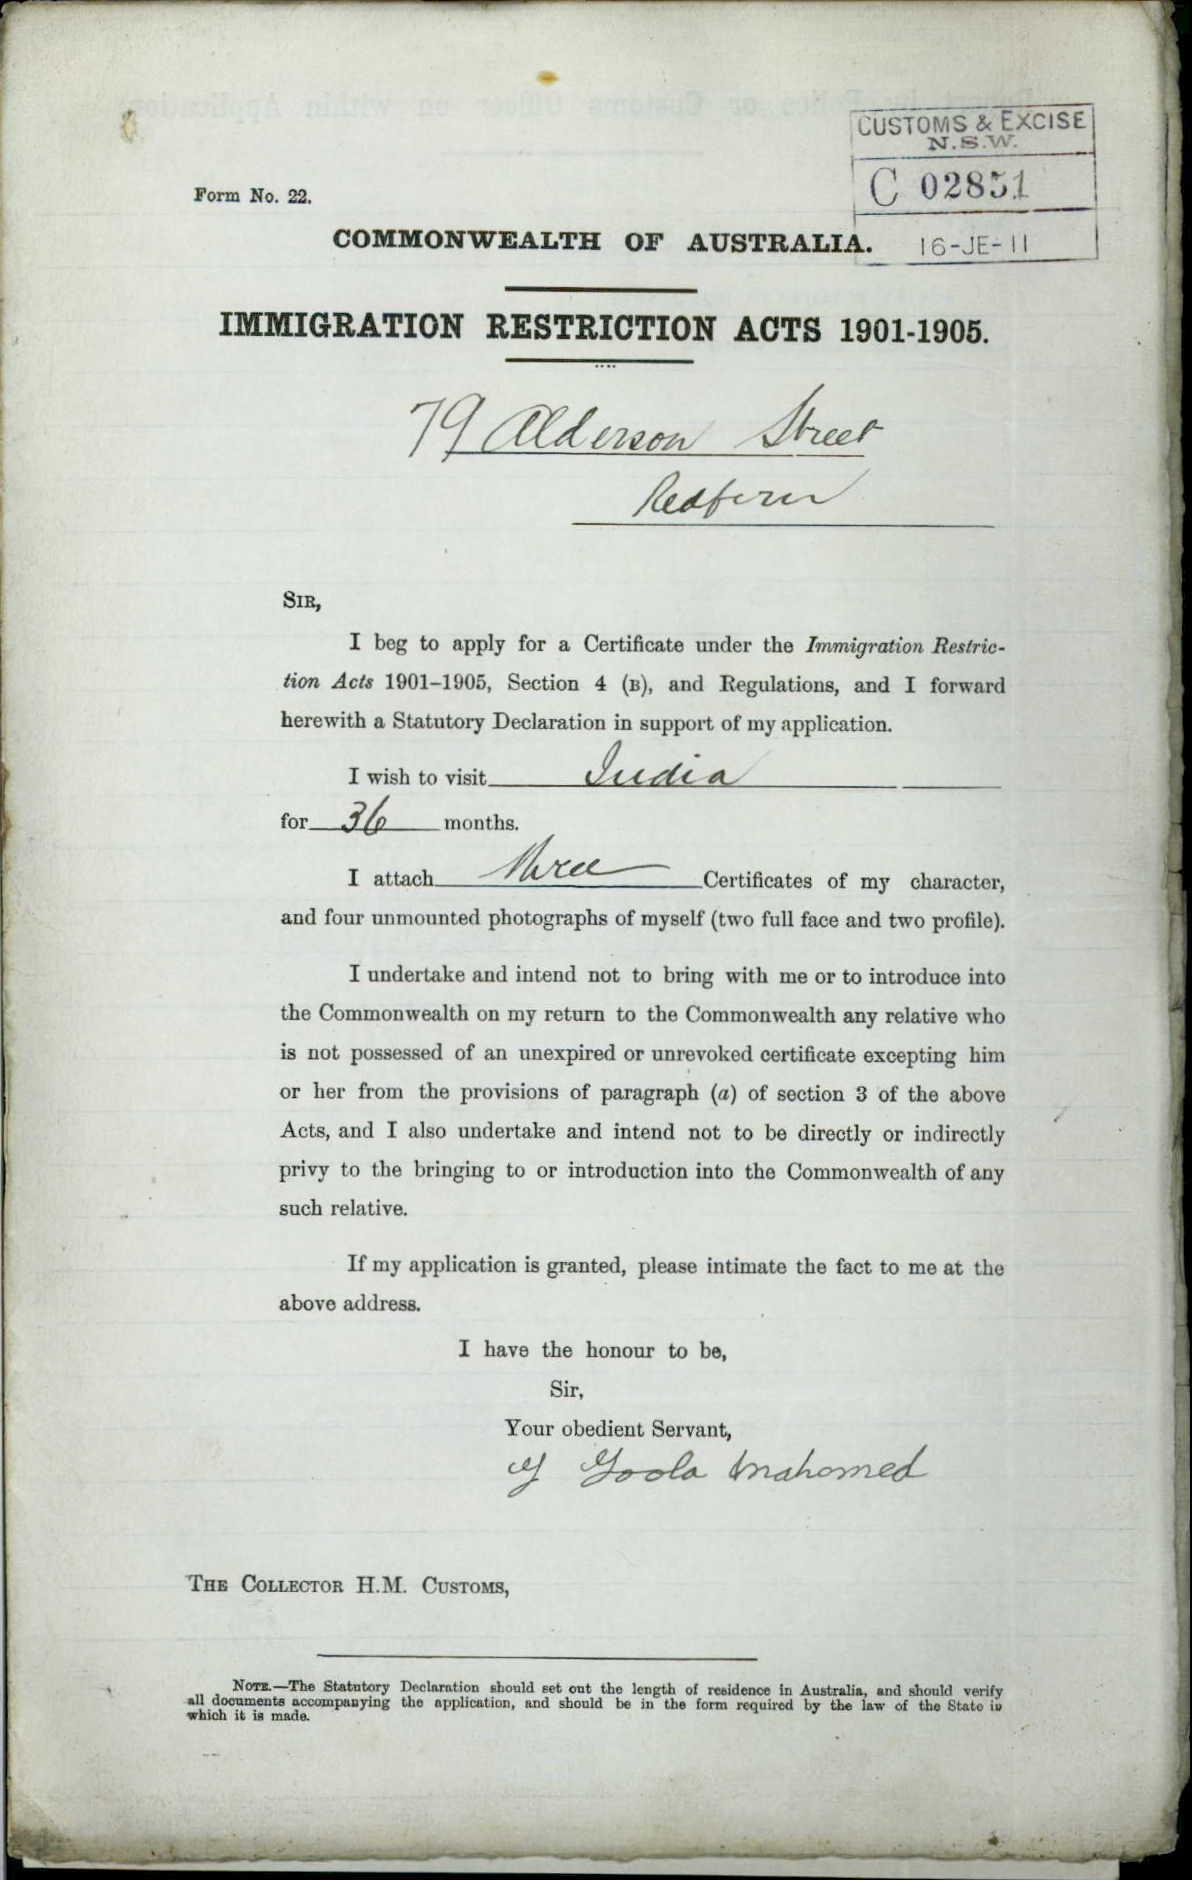 CUSTOMS & EXCISE
N.S.W.
C 02851
16-JE-11
Form No. 22.
COMMONWEALTH OF AUSTRALIA.
IMMIGRATION RESTRICTION ACTS 1901-1905.
79 Alderson Street
Redfern
SIR,
I beg to apply for a Certificate under the Immigration Restric-
tion Acts 1901–1905, Section 4 (B), and Regulations, and I forward
herewith a Statutory Declaration in support of my application.
I wish to visit India
for 36 months.
I attach three Certificates of my character,
and four unmounted photographs of myself (two full face and two profile).
I undertake and intend not to bring with me or to introduce into
the Commonwealth on my return to the Commonwealth any relative who
is not possessed of an unexpired or unrevoked certificate excepting him
or her from the provisions of paragraph (a) of section 3 of the above
Acts, and I also undertake and intend not to be directly or indirectly
privy to the bringing to or introduction into the Commonwealth of any
such relative.
If my application is granted, please intimate the fact to me at the
above address.
I have the honour to be,
Sir,
Your obedient Servant,
Goola Mahomed
THE COLLECTOR H.M. CUSTOMS,
NOTE.—The Statutory Declaration should set out the length of residence in Australia, and should verify
all documents accompanying the application, and should be in the form required by the law of the State in
which it is made.